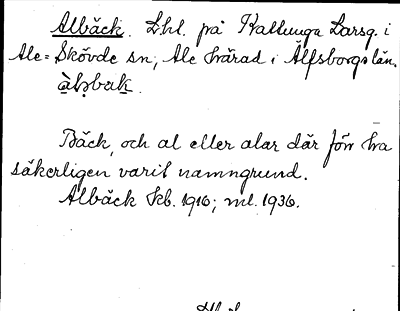 Albäck. Lhl. på Kallunga Larsg. i
Ale-Skövde sn, Ale härad i Älfsborgs län.
àḷḅbak.
Bäck, och al eller alar där förr ha
säkerligen varit namngrund.
Albäck Kb. 1910; ml. 1936.